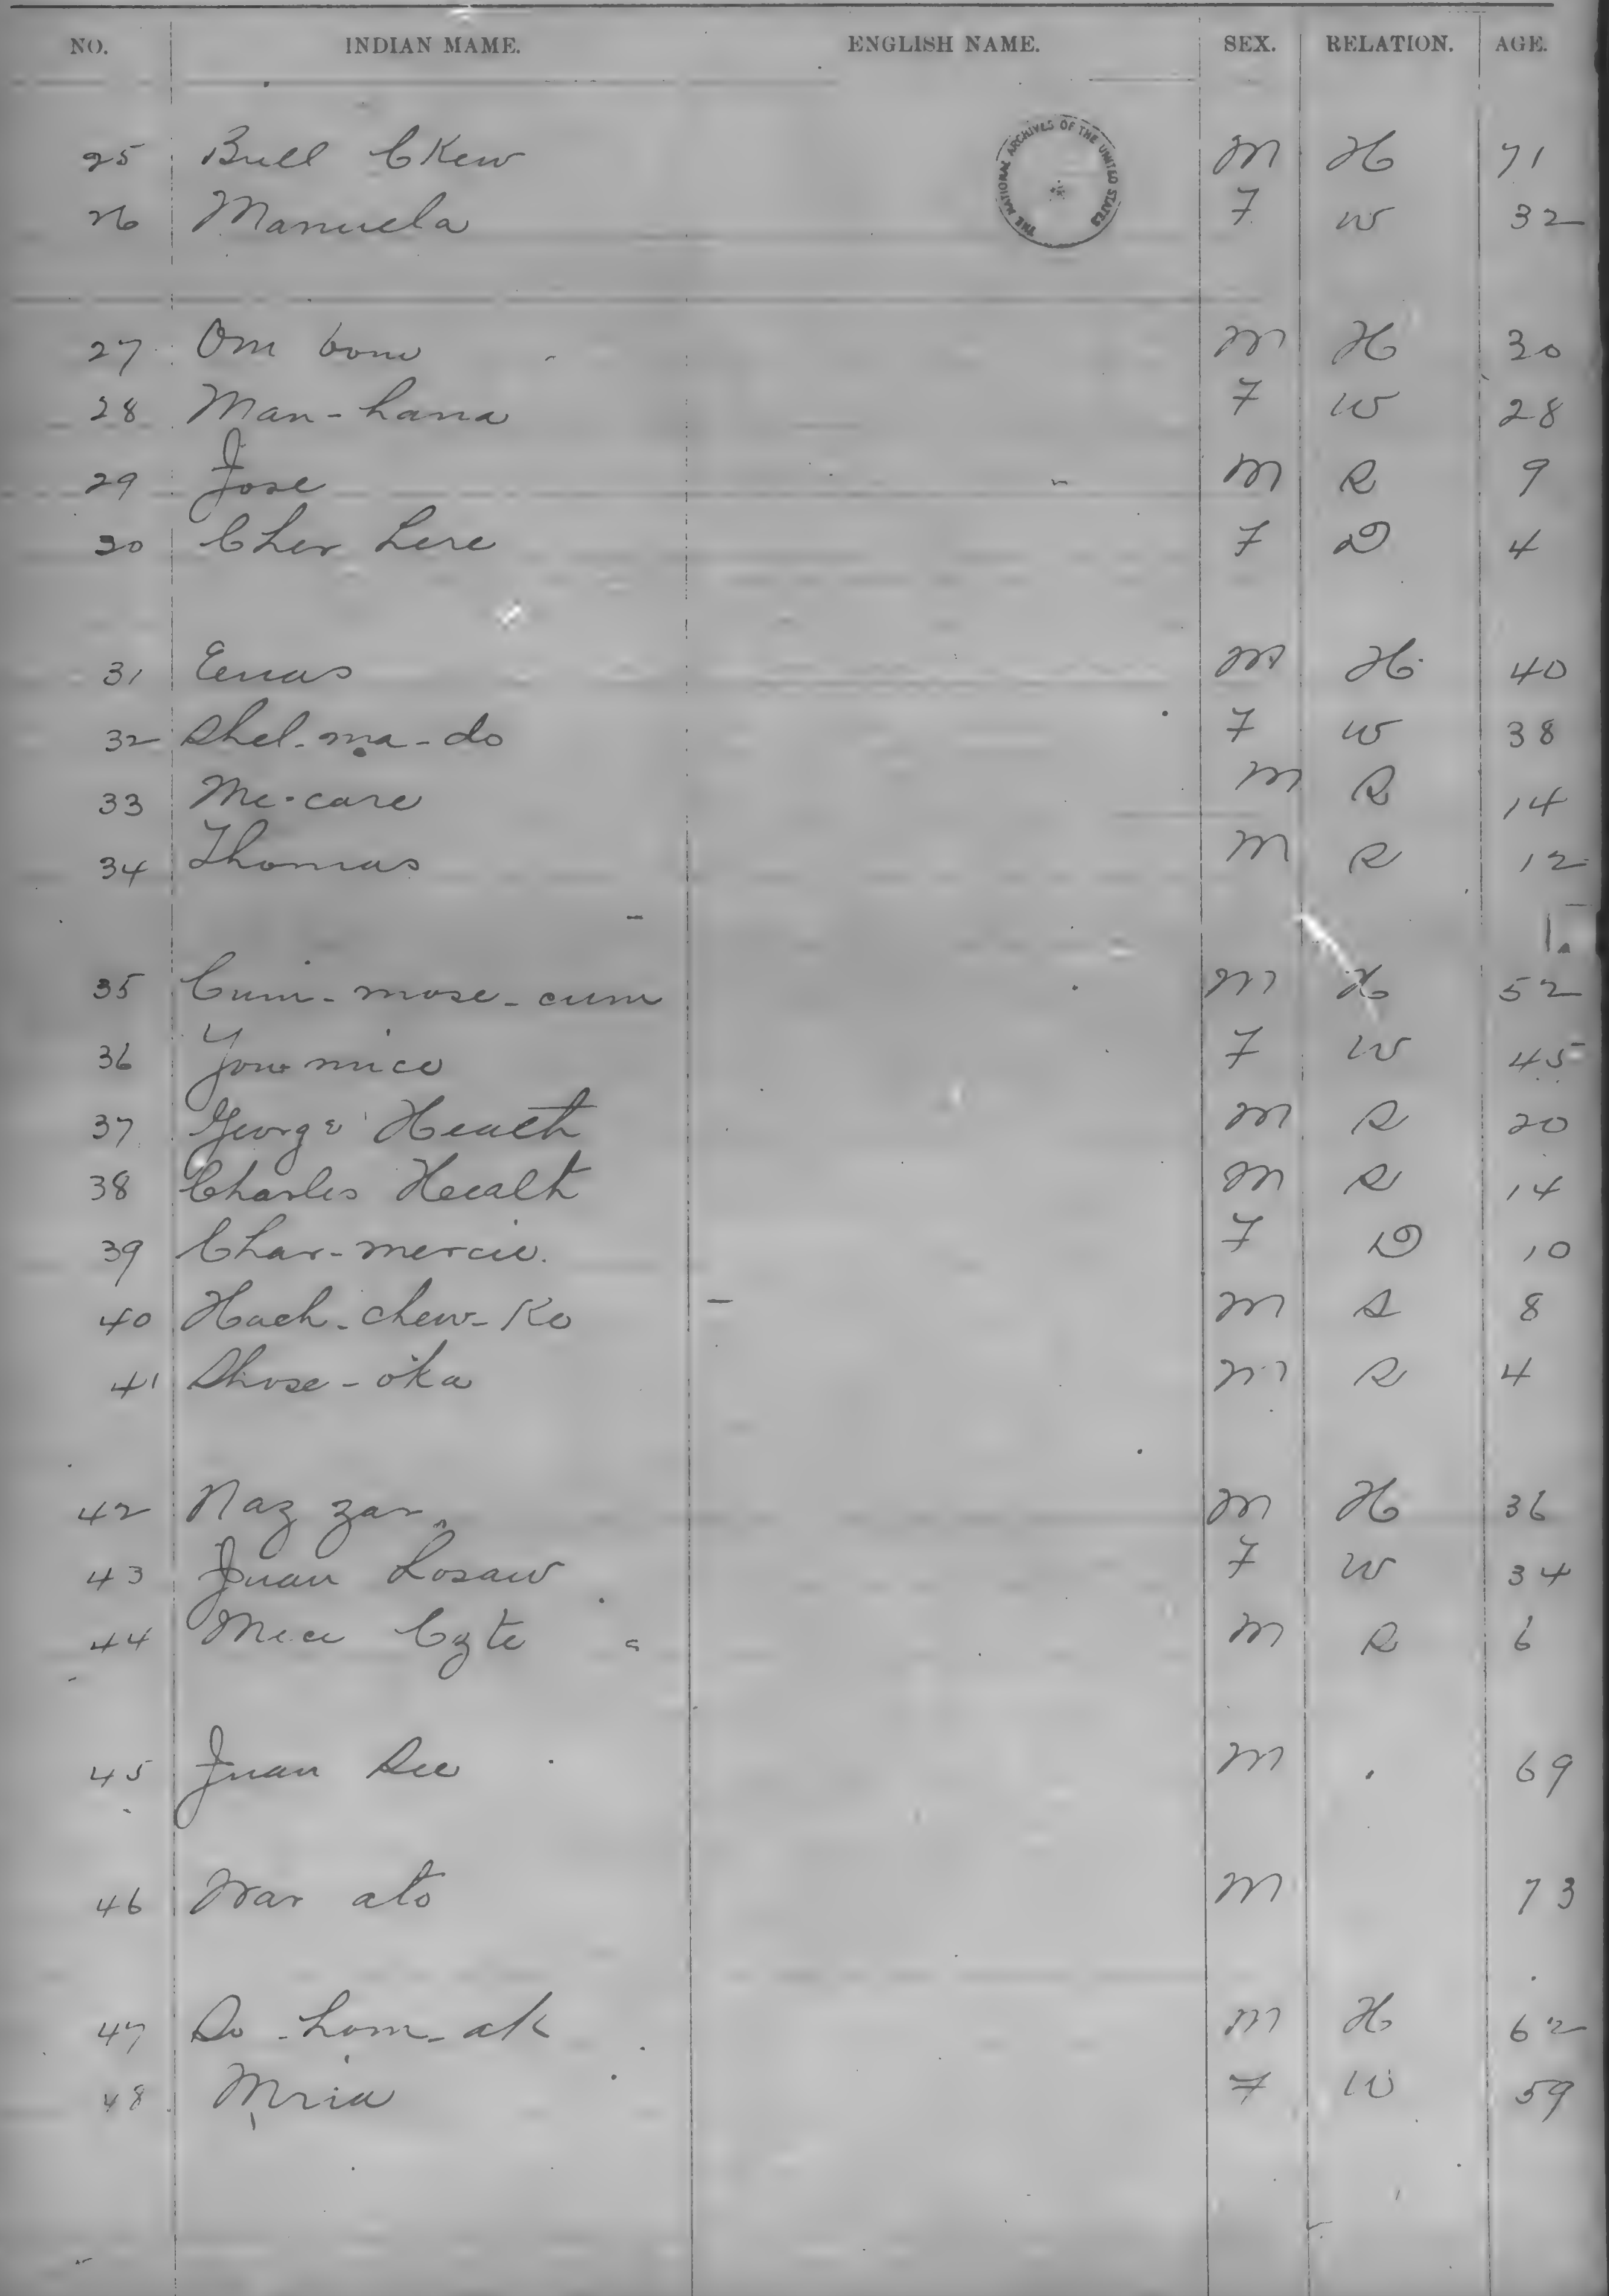 NO. INDIAN MAME. ENGLISH NAME. SEX. RELATION. AGE.
THE NATIONAL ARCHIVES OF THE UNITED STATES
25 Bull Ckew M H 71
26 Manuela F W 32
27 Om bow M H 30
28 Man-hana F W 28
29 Jose M S 9
30 Cher here F D 4
31 Enas M H 40
32 Shel-ma-do F W 38
33 Me-care M S 14
34 Thomas M S 12
35 Cum-mose-cum M H 52
36 Yow mice F W 45
37 George Heath M S 20
38 Charles Healt M S 14
39 Char-mercie. F D 10
40 Hach-chew-Ko M S 8
41 Shose-oka M S 4
42 Naz zar M H 36
43 Juan Losaw F W 34
44 Mece Czte M S 6
45 Juan See M 69
46 War ato M 73
47 So-hom-ak M H 62
48 Mria F W 59